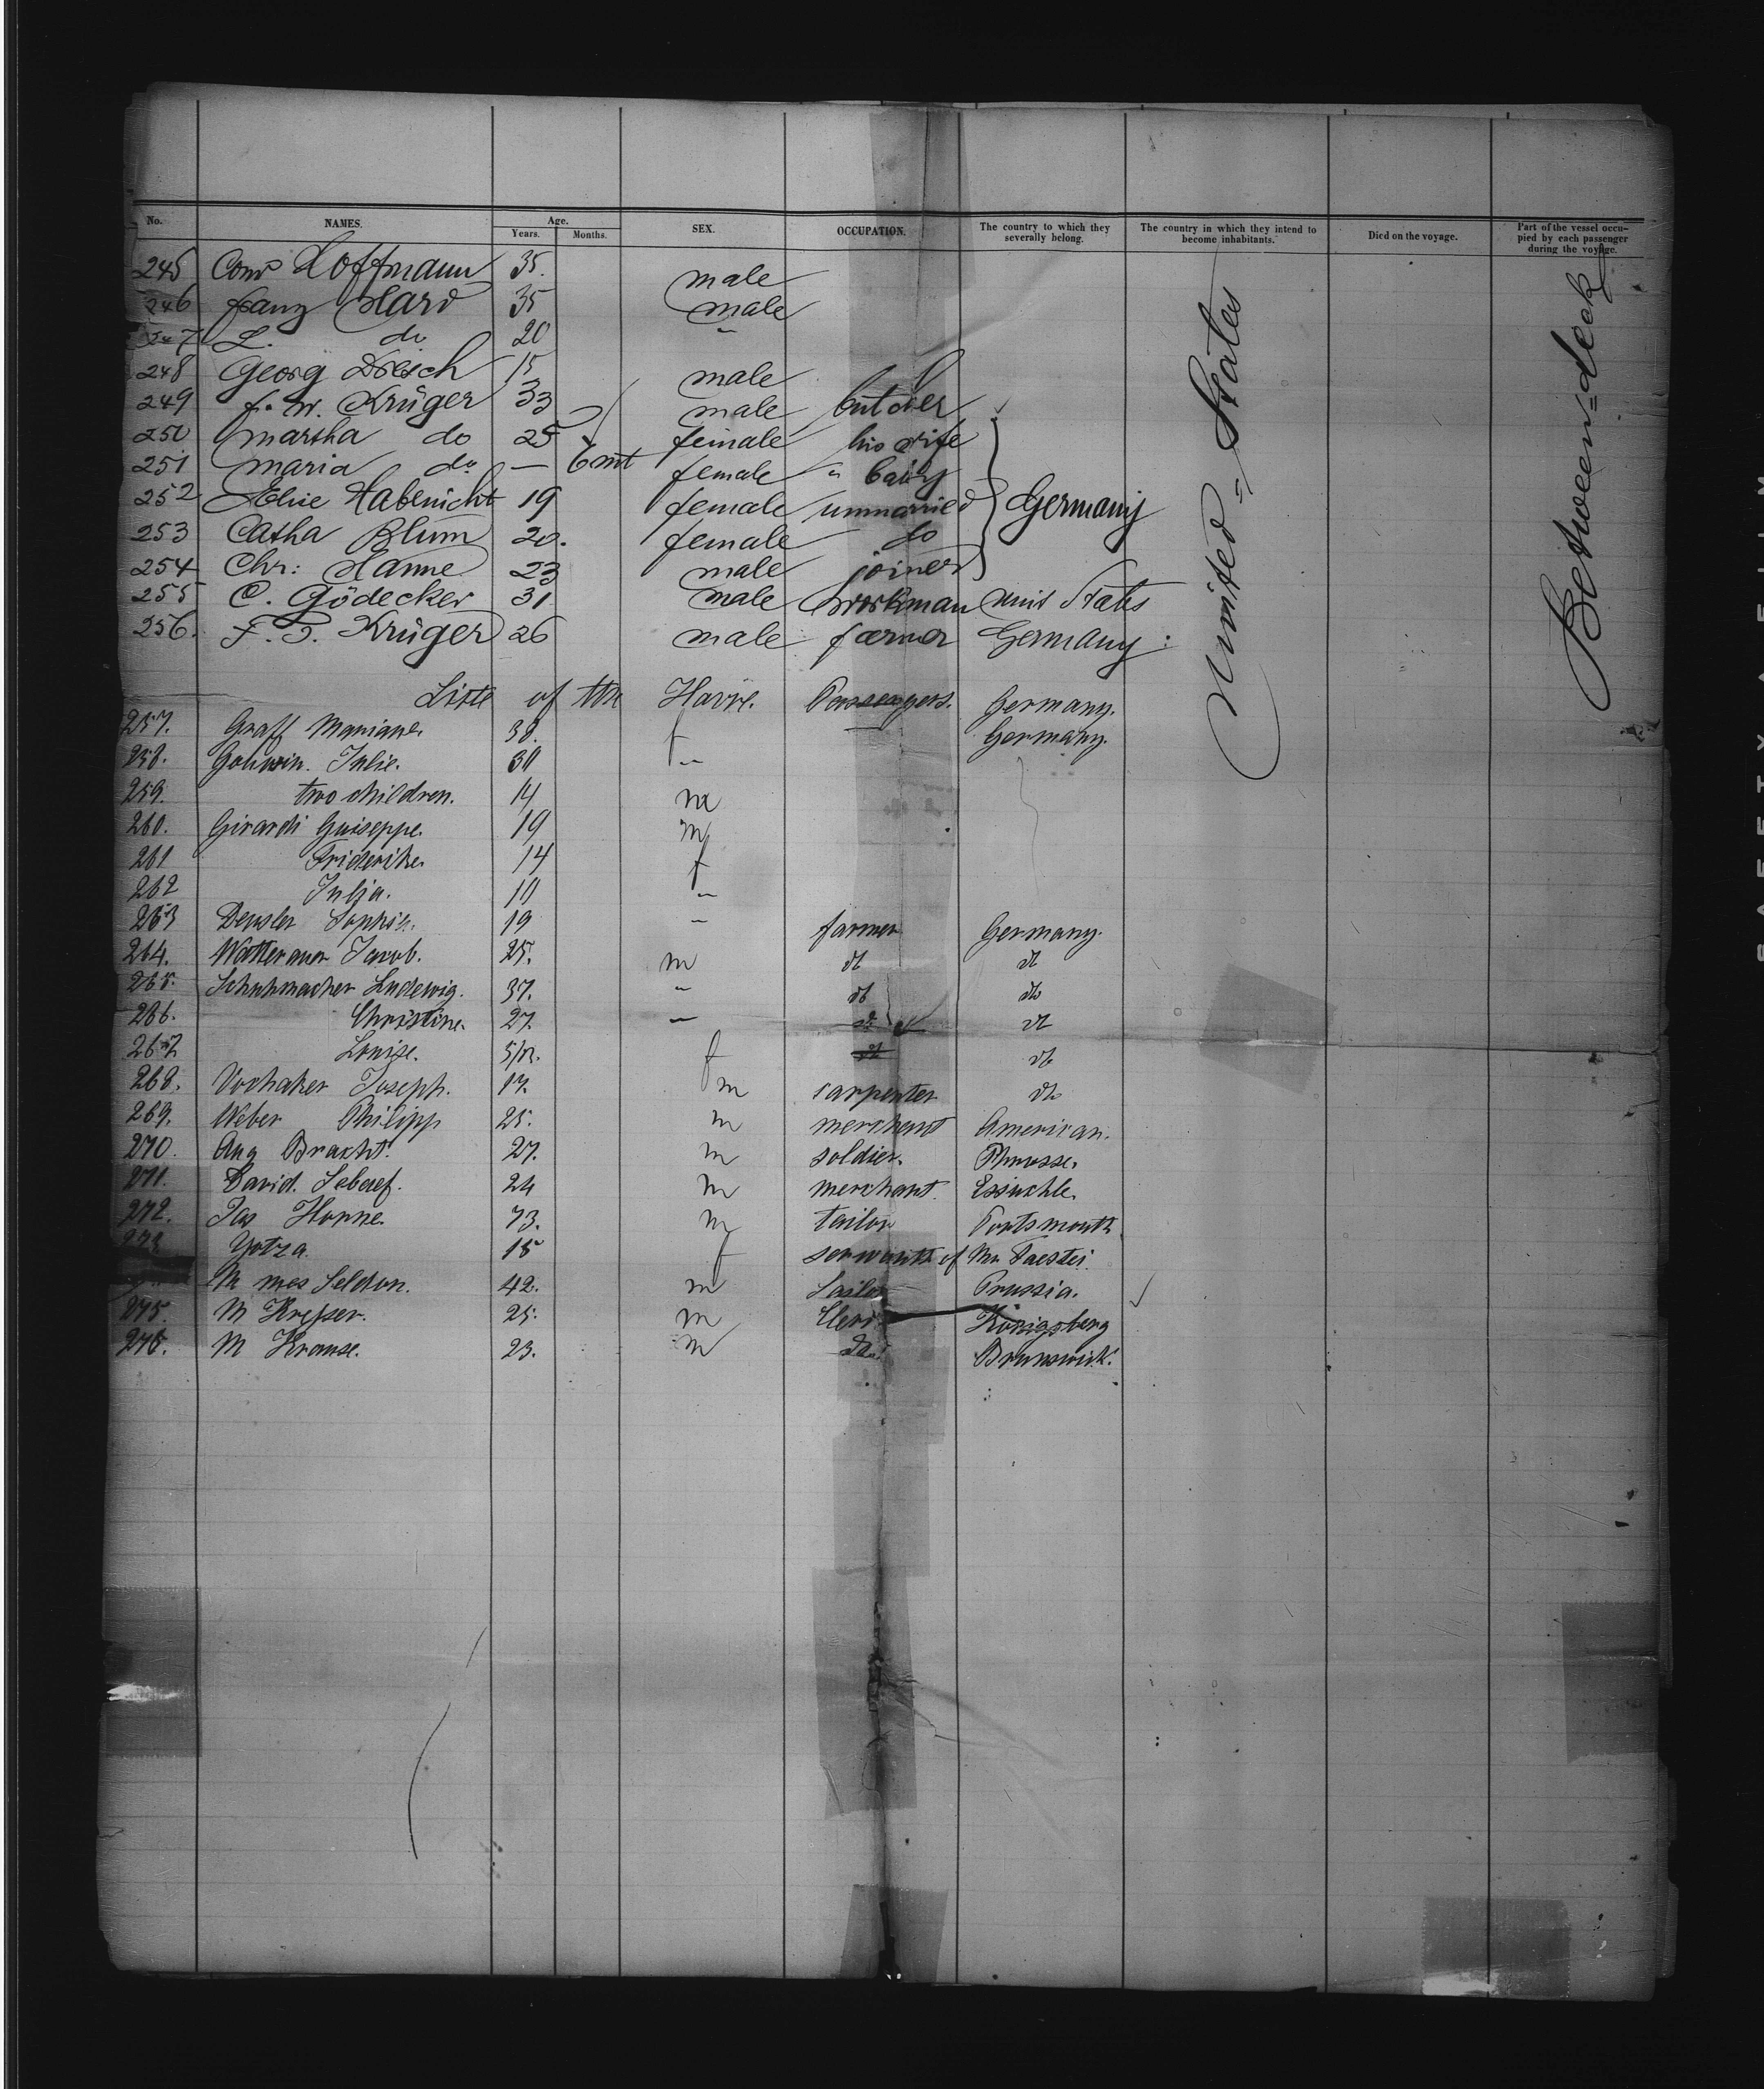 No. NAMES. Age. Years. Months. SEX. OCCUPATION. The country to which they severally belong. The country in which they intend to become inhabitants. Died on the voyage. Part of the vessel occupied by each passenger during the voyage.
245 Conr Hoffmann 35. male
246 franz Hard 35 male
247 L. do 20 "
248 Georg Dresch 15 male
249 f. W. Krüger 33 male butcher
250 martha do 25 female his wife
251 maria do — 6 mt female " baby
252 Elise Habenicht 19 female unmarried Germany
253 Catha Blum 20. female do
254 Chr: Hanne 23 male joiner
255 C. Gödecker 31 male workman unit States
256. F. J. Krüger 26 male farmer Germany
United = States
Between = deck
Liste of the Havre. Passengers. Germany.
257. Graff Mariane. 38. f Germany.
258. Julie. 30 "
259. two children. 14 m
260. Girardi Guiseppe. 19 m
261 Friderike. 14 f
262 Julja. 10 "
263 Sophie. 19 " farmer Germany.
264. Jacob. 25. m dt dt
265. Schuhmacher Ludewig. 37. " dt do
266. Christine. 27. " dt
267 Louise. 5/12. f dt do
268. Joseph. 17. m carpenter do
269. Weber Philipp 25. m merchant American.
270. Aug Bracht. 27. m soldier.
271. David. 24 m merchant.
272. Jas Horne. 73. m tailor Portsmouth
273 Yotza. 15 f servant of Mr
M mes Seldson. 42. m Sailor Prussia.
275. M 25. m Clerk Königsberg
276. M Krause. 23. m do. Brunswick.
SAFETY